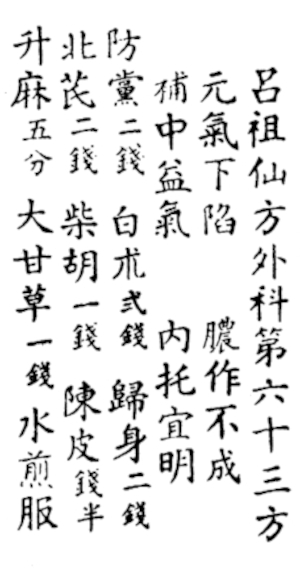 呂祖仙方外科第六十三方
元氣下陷 膿作不成
補中益氣 內托宜明
防黨二錢 白朮弍錢 歸身二錢
北芪二錢 柴胡一錢 陳皮錢半
升麻五分 大甘草一錢 水煎服